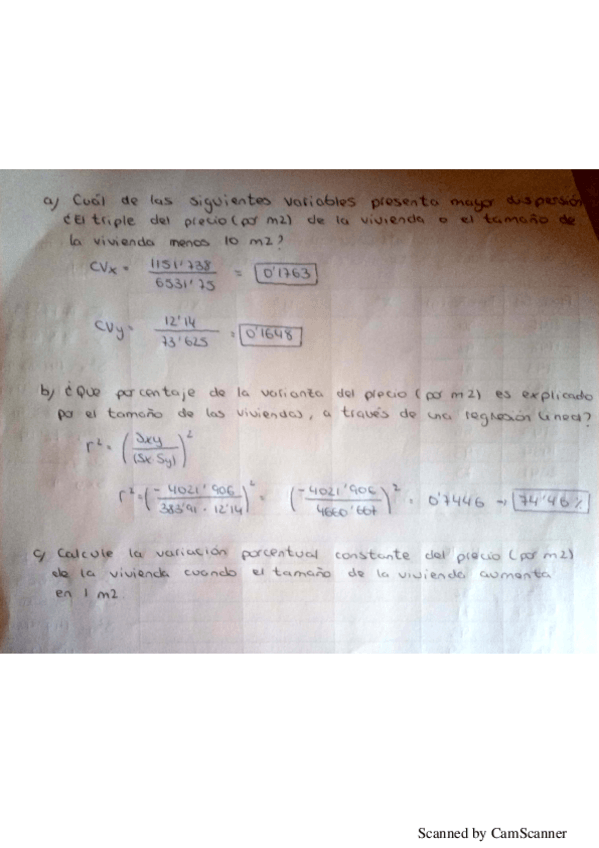 a) Cuál de las siguientes variables presenta mayor dispersión
¿El triple del precio (por m2) de la vivienda o el tamaño de
la vivienda menos 10 m2?
CVx = 1151'738 / 6531'75 = 0'1763
CVy = 12'14 / 73'625 = 0'1648
b) ¿Que porcentaje de la varianza del precio (por m2) es explicado
por el tamaño de las viviendas, a través de una regresión lineal?
r² = (Sxy / (Sx Sy))²
r² = (-4021'906 / 383'91 · 12'14)² = (-4021'906 / 4660'667)² = 0'7446 → 74'46%
c) Calcule la variación porcentual constante del precio (por m2)
de la vivienda cuando el tamaño de la vivienda aumenta
en 1 m2.
Scanned by CamScanner